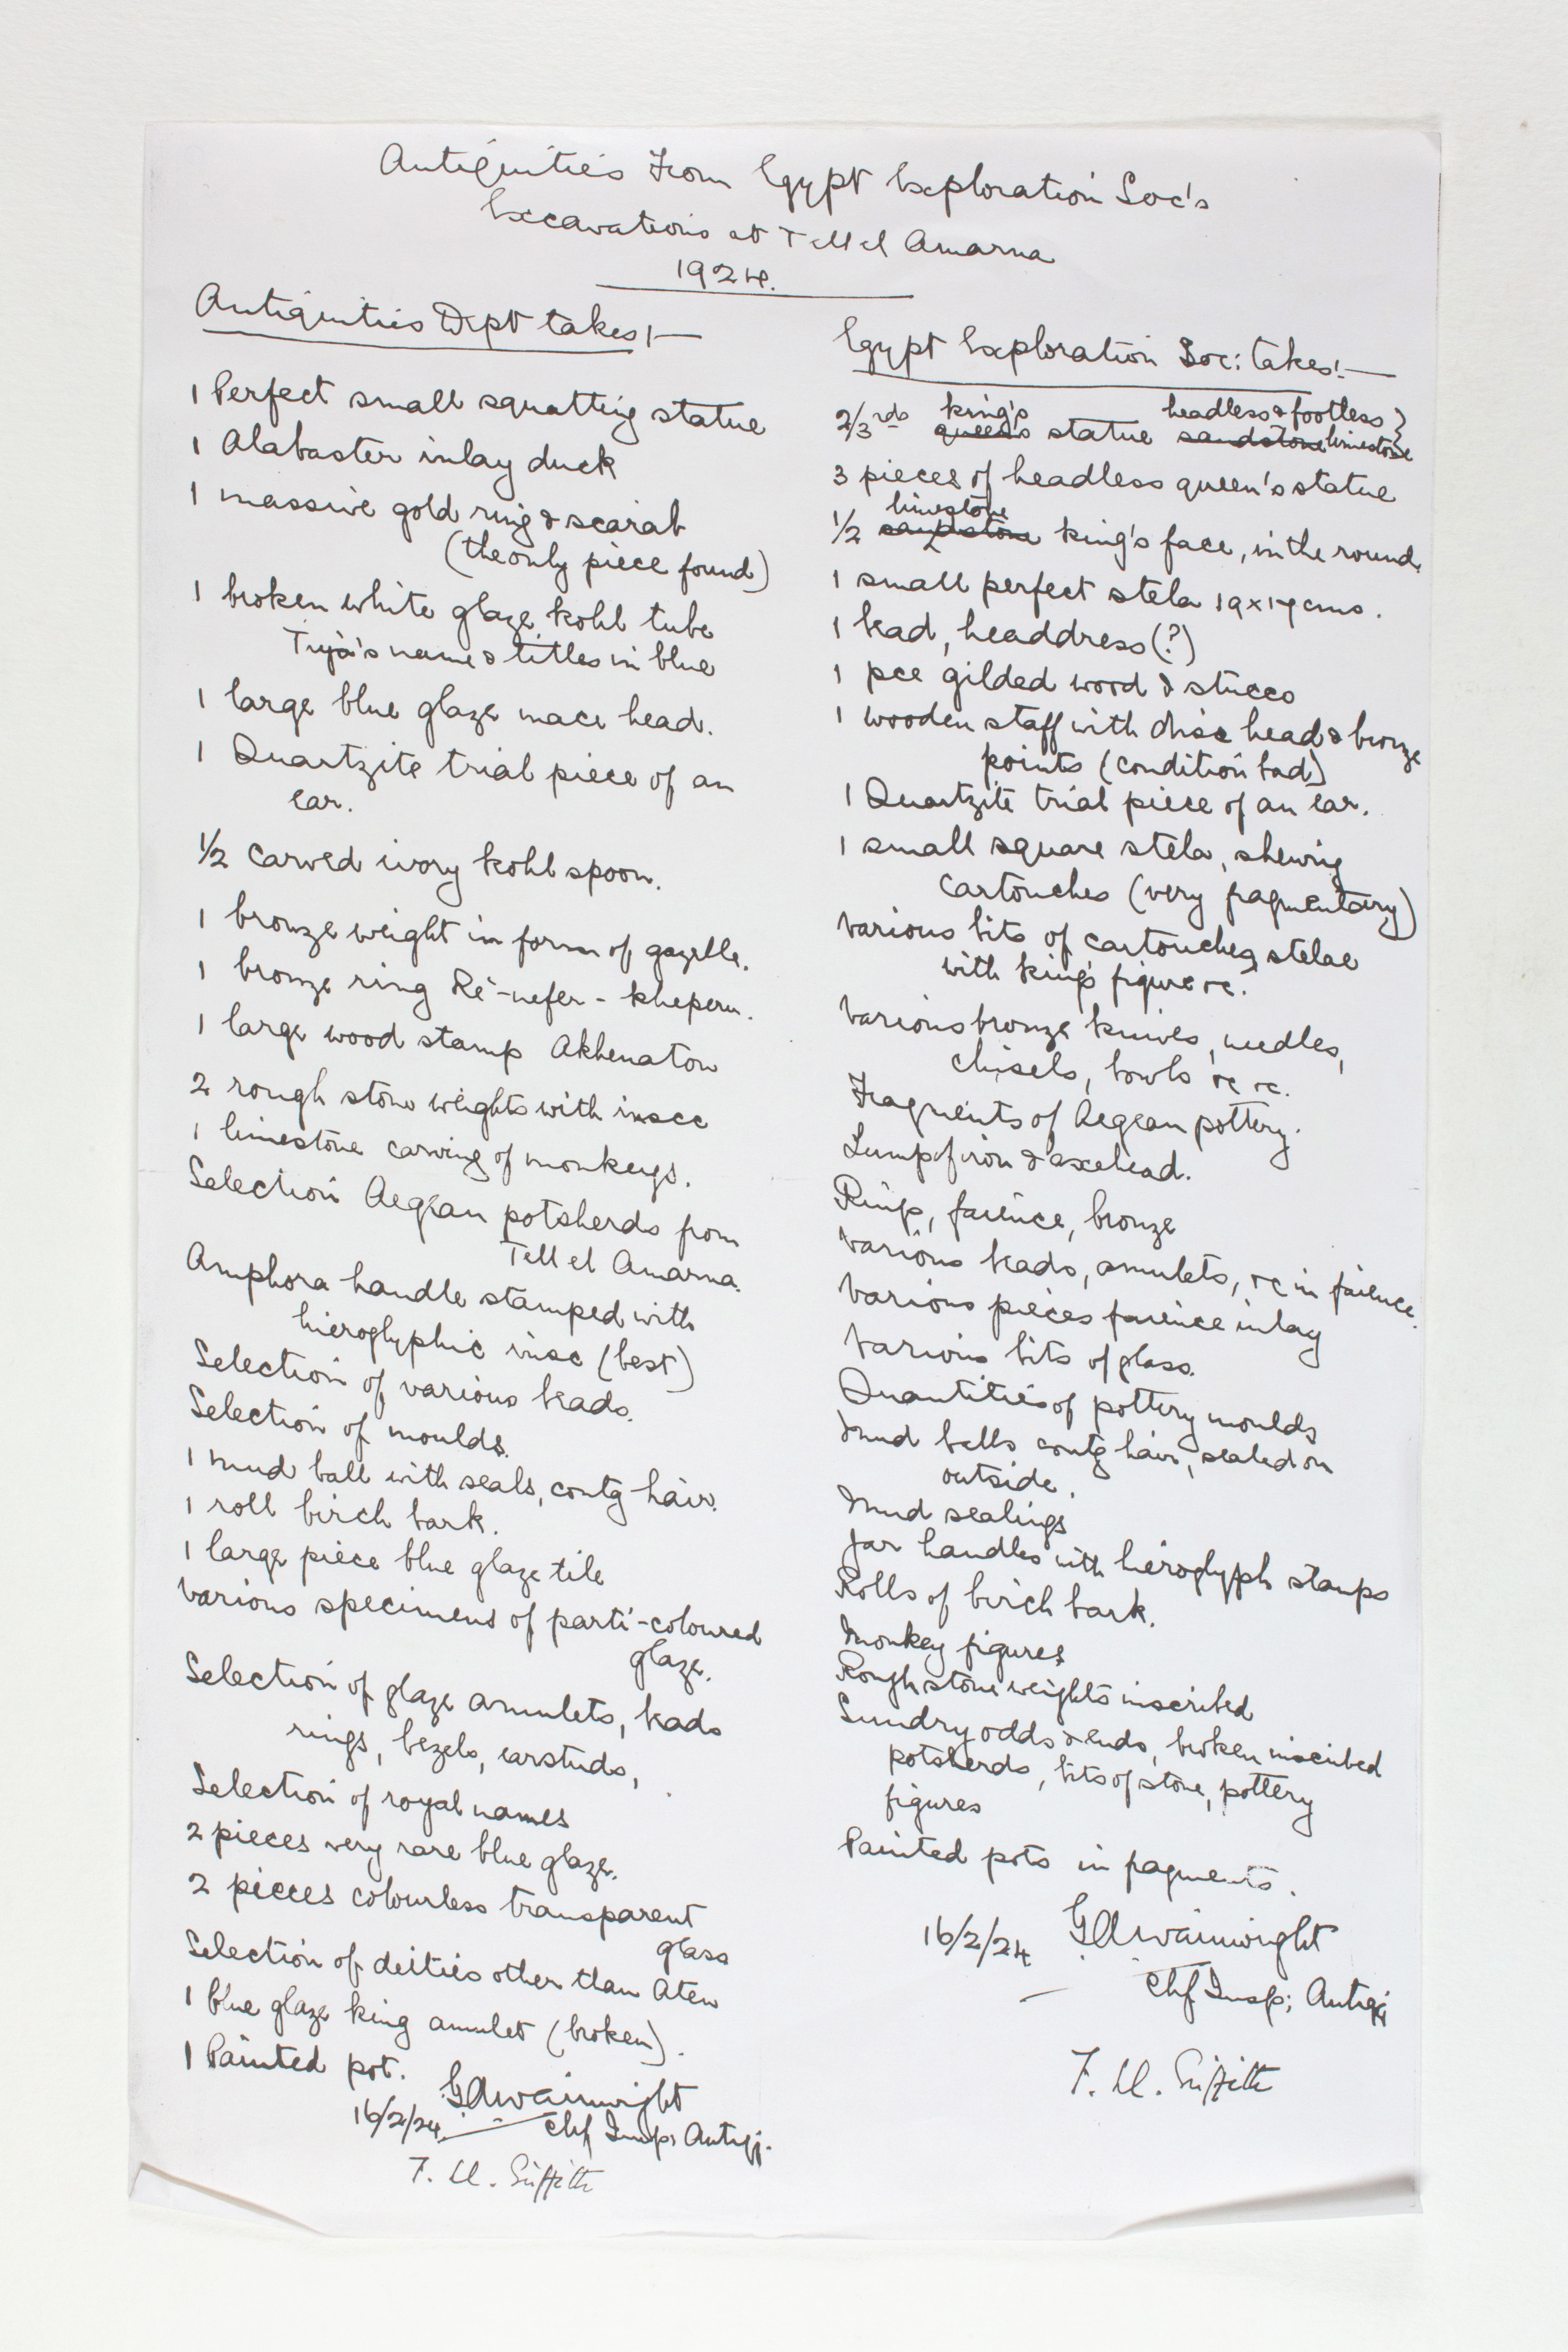 Antiquities From Egypt Exploration Soc's
Excavations at Tell el Amarna
1924.
Antiquities Dept takes:—
1 Perfect small squatting statue
1 Alabaster inlay duck
1 massive gold ring & scarab
(the only piece found)
1 broken white glaze kohl tube
Tiya's name & titles in blue
1 large blue glaze mace head.
1 Quartzite trial piece of an
ear.
1/2 carved ivory kohl spoon.
1 bronze weight in form of gazelle.
1 bronze ring Re-nefer-kheperu.
1 large wood stamp Akhenaton
2 rough stone weights with insec
1 limestone carving of monkeys.
Selection Aegean potsherds from
Tell el Amarna.
Amphora handle stamped with
hieroglyphic insc (best)
Selection of various beads.
Selection of moulds.
1 mud ball with seals, contg hair.
1 roll birch bark.
1 large piece blue glaze tile
Various specimens of parti-coloured
glaze.
Selection of glaze amulets, beads
rings, bezels, earstuds,
Selection of royal names
2 pieces very rare blue glaze.
2 pieces colourless transparent
glass
Selection of deities other than Aten
1 blue glaze king amulet (broken).
1 Painted pot.
16/2/24 GAWainwright
Chf Insp; Antiq;
F. Ll. Griffith
Egypt Exploration Soc: takes:—
2/3rds king's queen's statue headless & footless sandstone limestone
3 pieces of headless queen's statue
1/2 limestone sandstone king's face, in the round.
1 small perfect stela 19x17cms.
1 bead, headdress (?)
1 pce gilded wood & stucco
1 wooden staff with disc head & bronze
points (condition bad)
1 Quartzite trial piece of an ear.
1 small square stela, shewing
cartouches (very fragmentary)
Various bits of cartouches, stelae
with king's figure &c.
Various bronze knives, needles,
chisels, bowls &c &c.
Fragments of Aegean pottery.
Lump of iron & axehead.
Rings, faience, bronze
Various beads, amulets, &c in faience.
Various pieces faience inlay
Various bits of glass.
Quantities of pottery moulds
Mud balls contg hair, sealed on
outside.
Mud sealings
Jar handles with hieroglyph stamps
Rolls of birch bark.
Monkey figures
Rough stone weights inscribed
Sundry odds & ends, broken inscribed
potsherds, bits of stone, pottery
figures
Painted pots in fragments.
16/2/24 GAWainwright
Chf Insp; Antiq;
F. Ll. Griffith